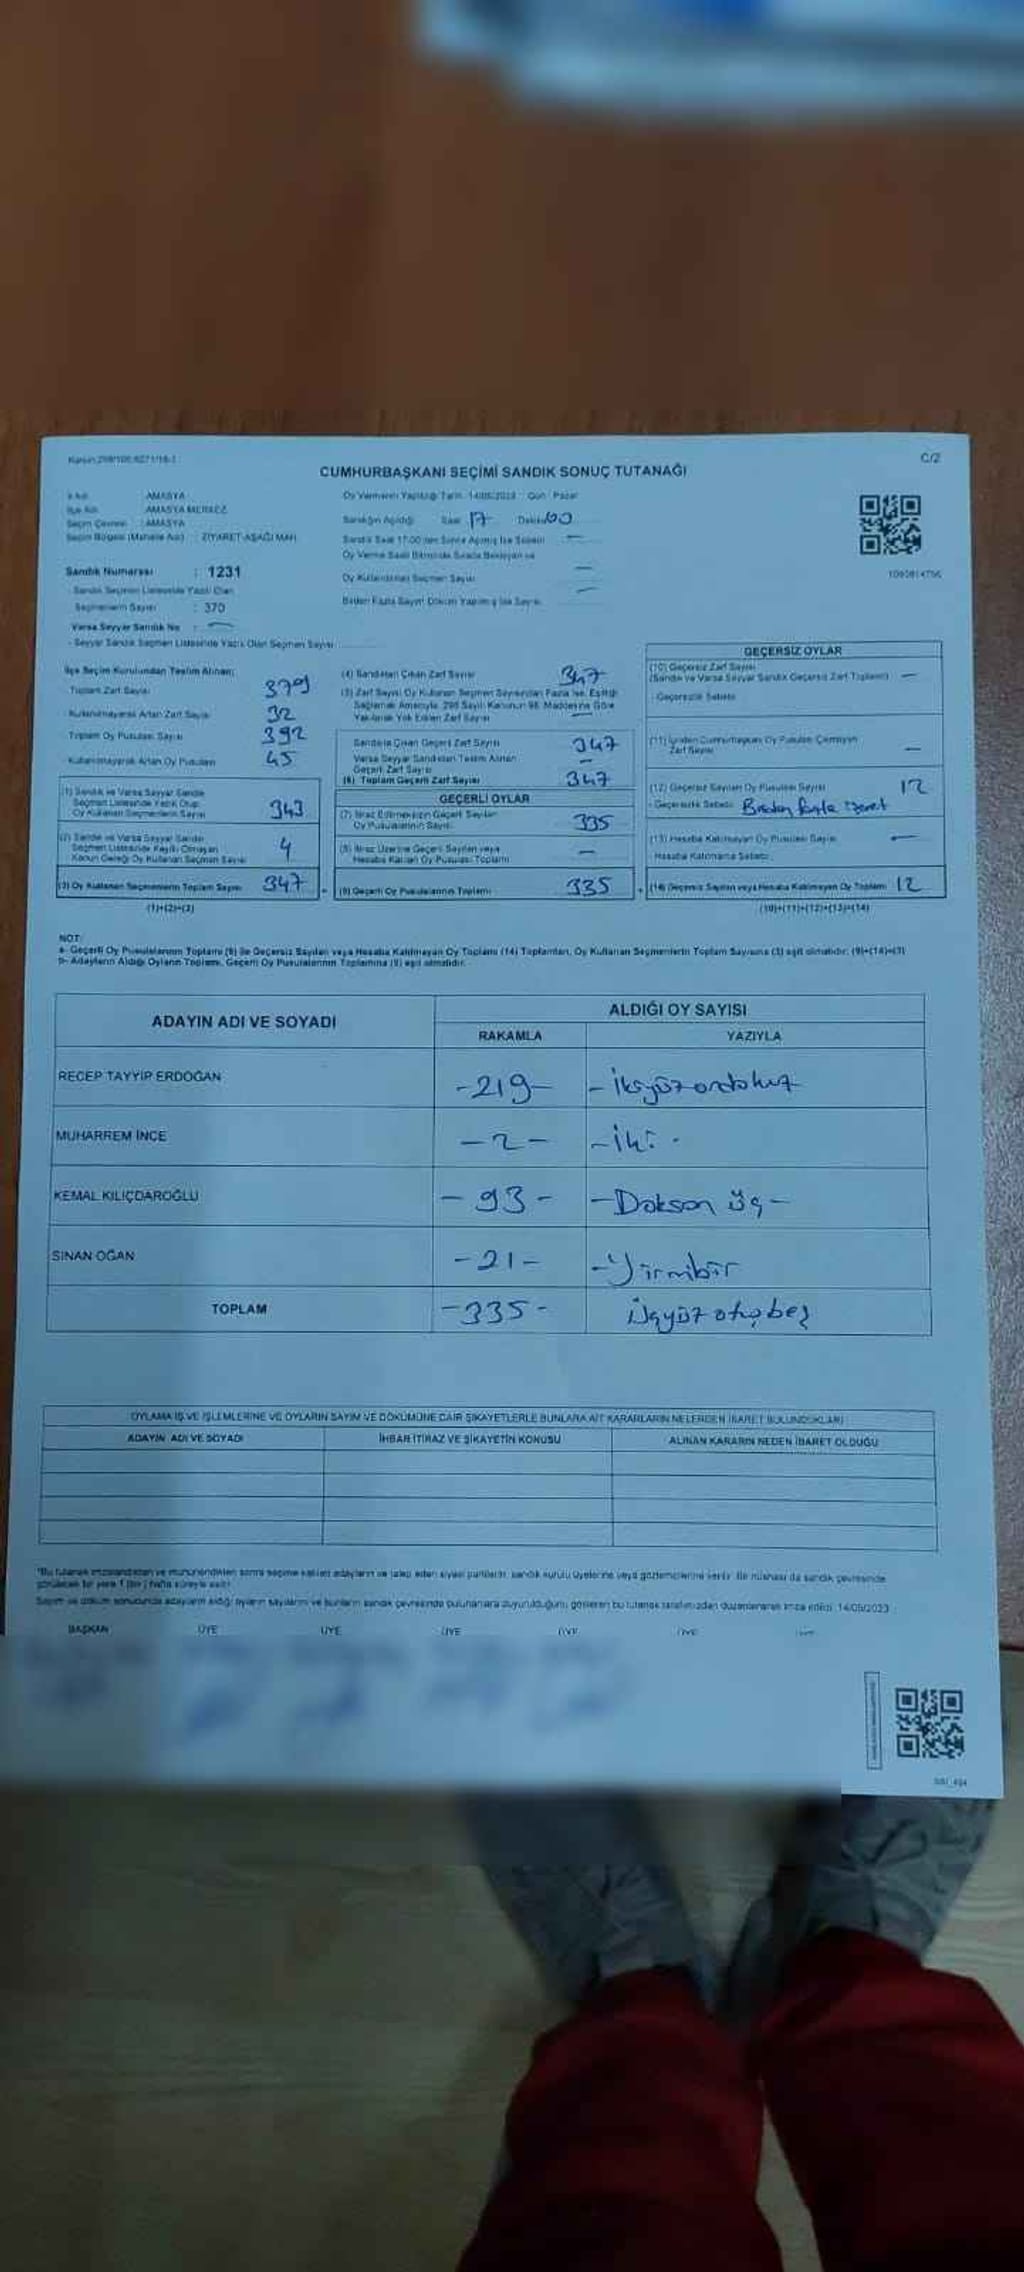 C/2
CUMHURBAŞKANI SEÇİMİ SANDIK SONUÇ TUTANAĞI
AMASYA
AMASYA MERKEZ
Seçim Çevresi : AMASYA
Seçim Bölgesi (Mahalle Adı) : ZİYARET-AŞAĞI MAH.
Sandık Numarası : 1231
Sandık Seçmen Listesinde Yazılı Olan
Seçmenlerin Sayısı : 370
Varsa Seyyar Sandık No : —
- Seyyar Sandık Seçmen Listesinde Yazılı Olan Seçmen Sayısı
Oy Vermenin Yapıldığı Tarih : 14/05/2023 Gün : Pazar
Sandığın Açıldığı Saat 17 Dakika 00
Sandık Saat 17.00'den Sonra Açılmış İse Sebebi —
Oy Verme Saati Bitiminde Sırada Bekleyen ve
Oy Kullandırılan Seçmen Sayısı —
Birden Fazla Sayım Döküm Yapılmış İse Sayısı —
İlçe Seçim Kurulundan Teslim Alınan;
Toplam Zarf Sayısı 379
Kullanılmayarak Artan Zarf Sayısı 32
Toplam Oy Pusulası Sayısı 392
Kullanılmayarak Artan Oy Pusulası 45
(1) Sandık ve Varsa Seyyar Sandık
Seçmen Listesinde Yazılı Olup
Oy Kullanan Seçmenlerin Sayısı 343
(2) Sandık ve Varsa Seyyar Sandık
Seçmen Listesinde Kayıtlı Olmayan
Kanun Gereği Oy Kullanan Seçmen Sayısı 4
(3) Oy Kullanan Seçmenlerin Toplam Sayısı 347
(1)+(2)=(3)
(4) Sandıktan Çıkan Zarf Sayısı 347
(5) Zarf Sayısı Oy Kullanan Seçmen Sayısından Fazla İse, Eşitliği
Sağlamak Amacıyla, 298 Sayılı Kanunun 98. Maddesine Göre
Yakılarak Yok Edilen Zarf Sayısı —
Sandıkta Çıkan Geçerli Zarf Sayısı 347
Varsa Seyyar Sandıktan Teslim Alınan
Geçerli Zarf Sayısı —
(6) Toplam Geçerli Zarf Sayısı 347
GEÇERLİ OYLAR
(7) İtiraz Edilmeksizin Geçerli Sayılan
Oy Pusulalarının Sayısı 335
(8) İtiraz Üzerine Geçerli Sayılan veya
Hesaba Katılan Oy Pusulası Toplamı —
(9) Geçerli Oy Pusulalarının Toplamı 335
GEÇERSİZ OYLAR
(10) Geçersiz Zarf Sayısı
(Sandık ve Varsa Seyyar Sandık Geçersiz Zarf Toplamı) —
- Geçersizlik Sebebi:
(11) İçinden Cumhurbaşkanı Oy Pusulası Çıkmayan
Zarf Sayısı —
(12) Geçersiz Sayılan Oy Pusulası Sayısı 12
- Geçersizlik Sebebi: Birden fazla işaret
(13) Hesaba Katılmayan Oy Pusulası Sayısı —
- Hesaba Katılmama Sebebi:
(14) Geçersiz Sayılan veya Hesaba Katılmayan Oy Toplamı 12
(10)+(11)+(12)+(13)=(14)
NOT:
a- Geçerli Oy Pusulalarının Toplamı (9) ile Geçersiz Sayılan veya Hesaba Katılmayan Oy Toplamı (14) Toplamları, Oy Kullanan Seçmenlerin Toplam Sayısına (3) eşit olmalıdır. (9)+(14)=(3)
b- Adayların Aldığı Oyların Toplamı, Geçerli Oy Pusulalarının Toplamına (9) eşit olmalıdır.
ADAYIN ADI VE SOYADI
ALDIĞI OY SAYISI
RAKAMLA YAZIYLA
RECEP TAYYİP ERDOĞAN -219- -İkiyüzondokuz
MUHARREM İNCE -2- -iki-
KEMAL KILIÇDAROĞLU -93- -Doksan üç-
SİNAN OĞAN -21- -Yirmibir
TOPLAM -335- Üçyüzotuzbeş
OYLAMA İŞ VE İŞLEMLERİNE VE OYLARIN SAYIM VE DÖKÜMÜNE DAİR ŞİKAYETLERLE BUNLARA AİT KARARLARIN NELERDEN İBARET BULUNDUKLARI
ADAYIN ADI VE SOYADI İHBAR İTİRAZ VE ŞİKAYETİN KONUSU ALINAN KARARIN NEDEN İBARET OLDUĞU
*Bu tutanak imzalandıktan ve mühürlendikten sonra seçime katılan adayların ve talep eden siyasi partilerin, sandık kurulu üyelerine veya gözlemcilerine verilir. Bir nüshası da sandık çevresinde
görülecek bir yere 1 (bir) hafta süreyle asılır.
Sayım ve döküm sonucunda adayların aldığı oyların sayılarını ve bunların sandık çevresinde bulunanlara duyurulduğunu gösteren bu tutanak tarafımızdan düzenlenerek imza edildi. 14/05/2023
BAŞKAN ÜYE ÜYE ÜYE ÜYE ÜYE